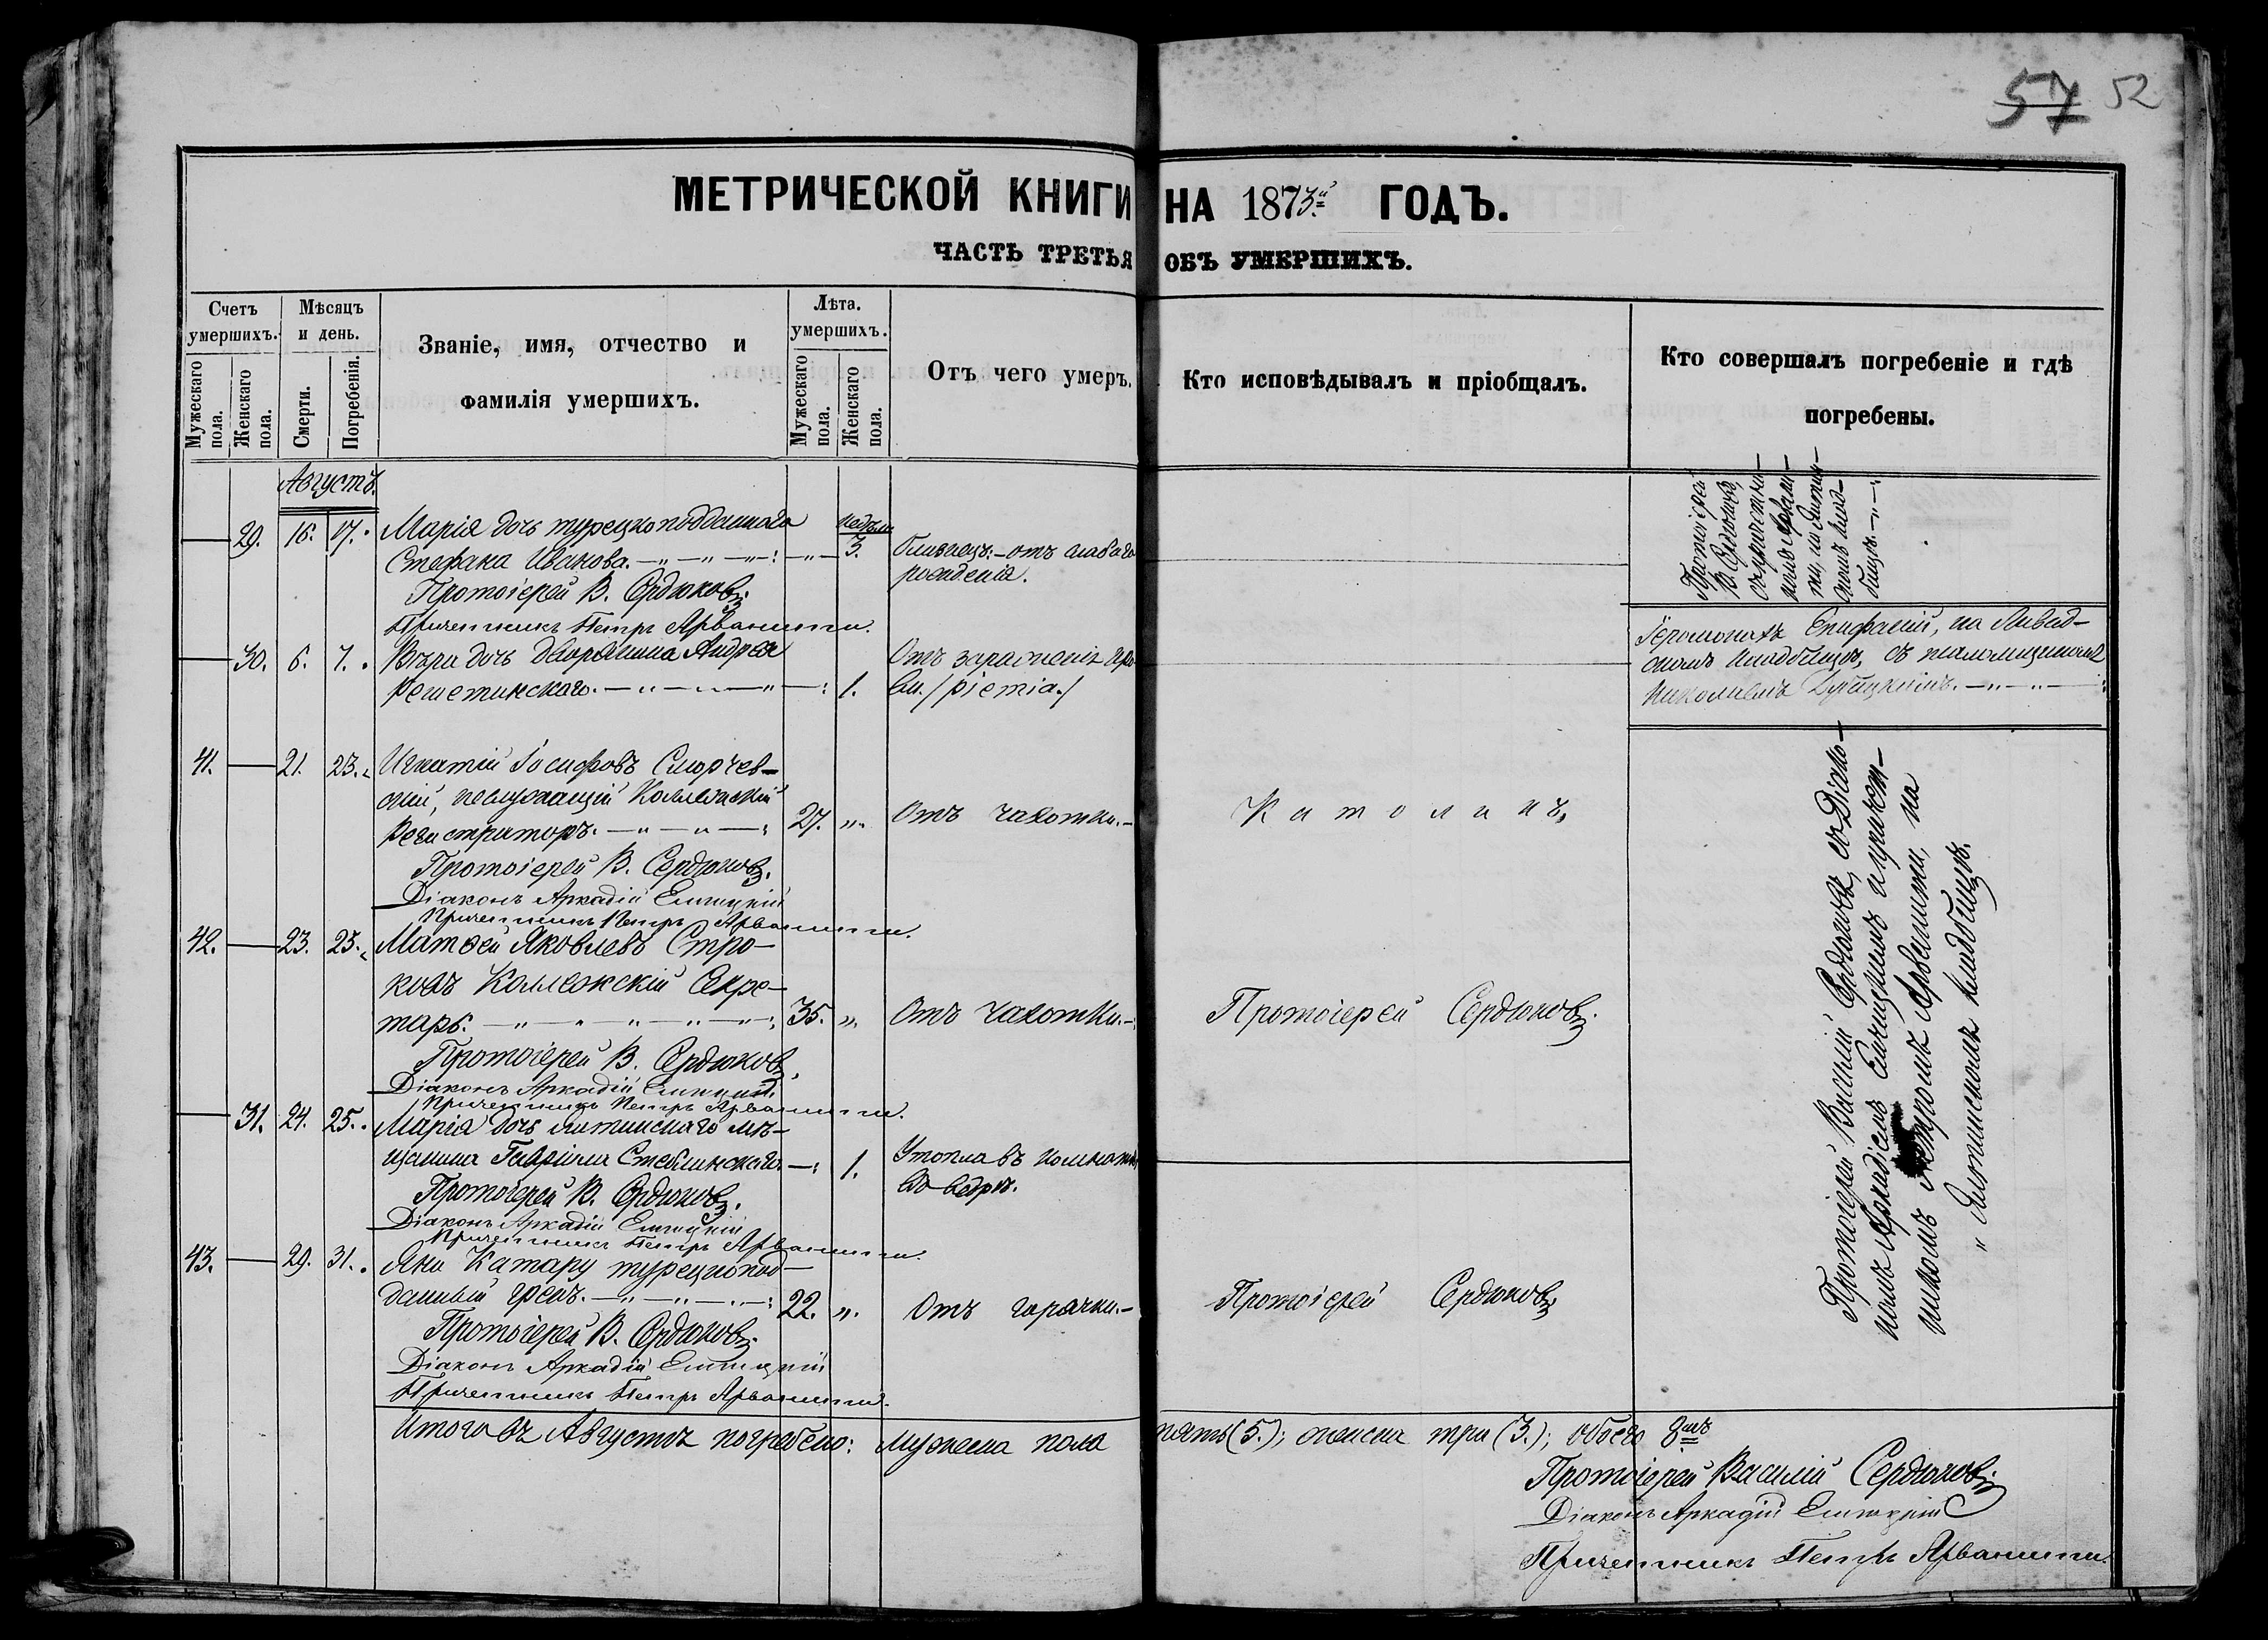 57 52
МЕТРИЧЕСКОЙ КНИГИ НА 1873й ГОДЪ.
ЧАСТЬ ТРЕТЬЯ ОБЪ УМЕРШИХЪ.
Счетъ умершихъ.
Мужескаго пола.
Женскаго пола.
Мѣсяцъ и день.
Смерти.
Погребенія.
Званіе, имя, отчество и
фамилія умершихъ.
Лѣта. умершихъ.
Мужескаго пола.
Женскаго пола.
Отъ чего умеръ.
Кто исповѣдывалъ и пріобщалъ.
Кто совершалъ погребеніе и гдѣ
погребены.
Августъ.
29. 16. 17. Марія дочь турецкоподданнаго
Стефана Иванова. недѣли 3.
близнецъ.- отъ слабаго
рожденія.
Протоіерей В. Сердюковъ
Причетникъ Петръ Арванити.
Протоіерей
В. Сердюковъ,
съ причетни-
комъ Арвани-
ти, на Ялтин-
скомъ клад-
бищѣ.
30. 6. 7. Вѣра дочь дворянина Андрея
Решетинскаго. 1.
Отъ зараженія кро-
ви. /piemia./
Іеромонахъ Епифаній, на Ливад-
скомъ кладбищѣ, съ псаломщикомъ
Николаемъ
41. 21. 23. Игнатій Іосифовъ Сморчев-
скій, неслужащій Коллежскій
Регистраторъ. 27. Отъ чахотки.-
Католикъ,
Протоіерей В. Сердюковъ.
Діаконъ Аркадій
Причетникъ Петръ Арванити.
42. 23. 25. Матѳей Яковлевъ Стро-
ковъ Коллежскій Секре-
тарь. 35. Отъ чахотки.-
Протоіерей Сердюковъ.
Протоіерей В. Сердюковъ,
Діаконъ Аркадій
Причетникъ Петръ Арванити.
31. 24. 25. Марія дочь ялтинскаго мѣ-
щанина Гавріила Стеблинскаго 1.
Утопла въ комнатѣ
въ ведрѣ.
Протоіерей В. Сердюковъ.
Діаконъ Аркадій
Причетникъ Петръ Арванити.
43. 29. 31. Яни Катару турецкопод-
данный грекъ. 22. Отъ горячки.-
Протоіерей Сердюковъ
Протоіерей В. Сердюковъ.
Діаконъ Аркадій
Причетникъ Петръ Арванити.
Протоіерей Василій Сердюковъ, съ Діако-
номъ Аркадіемъ и причет-
никомъ Петромъ Арванити, на
Ялтинскомъ кладбищѣ.
Итого въ Августѣ погребено: мужеска пола пять (5.); женска три (3.); обоего 8мь
Протоіерей Василій Сердюковъ
Діаконъ Аркадій
Причетникъ Петръ Арванити.